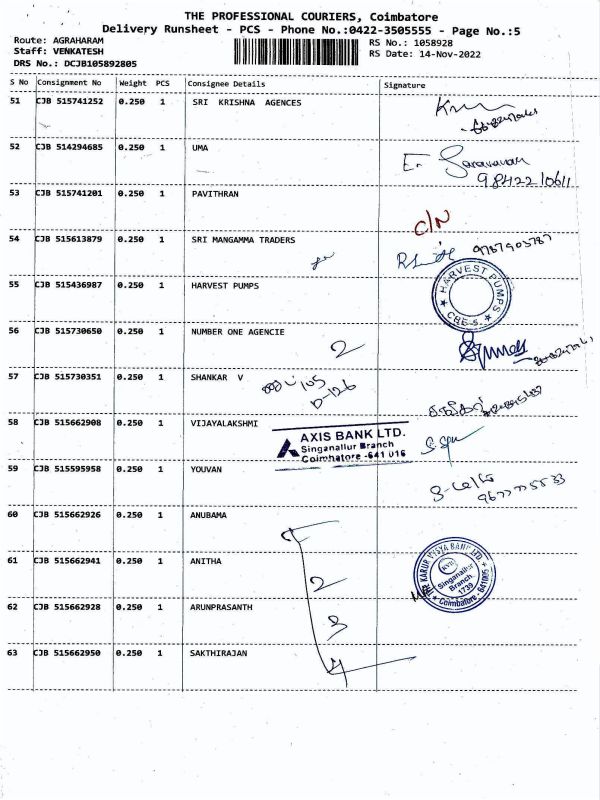 THE PROFESSIONAL COURIERS, Coimbatore
Delivery Runsheet - PCS - Phone No.:0422-3505555 - Page No.:5
Route: AGRAHARAM
Staff: VENKATESH
DRS No.: DCJB105892805
RS No.: 1058928
RS Date: 14-Nov-2022
S No Consignment No Weight PCS Consignee Details Signature
51 CJB 515741252 0.250 1 SRI KRISHNA AGENCES
52 CJB 514294685 0.250 1 UMA
E. Saravanan
9842210611
53 CJB 515741201 0.250 1 PAVITHRAN
C/N
54 CJB 515613879 0.250 1 SRI MANGAMMA TRADERS
55 CJB 515436987 0.250 1 HARVEST PUMPS
HARVEST PUMPS
CBE-5.
56 CJB 515730650 0.250 1 NUMBER ONE AGENCIE
2
57 CJB 515730351 0.250 1 SHANKAR V
D-126
58 CJB 515662908 0.250 1 VIJAYALAKSHMI
AXIS BANK LTD.
Singanallur Branch
Coimbatore -641 016
59 CJB 515595958 0.250 1 YOUVAN
60 CJB 515662926 0.250 1 ANUBAMA
61 CJB 515662941 0.250 1 ANITHA
2
KARUR VYSYA BANK LTD
KVB
Singanallur
Branch.
1739
Coimbatore - 641005
62 CJB 515662928 0.250 1 ARUNPRASANTH
3
63 CJB 515662950 0.250 1 SAKTHIRAJAN
4